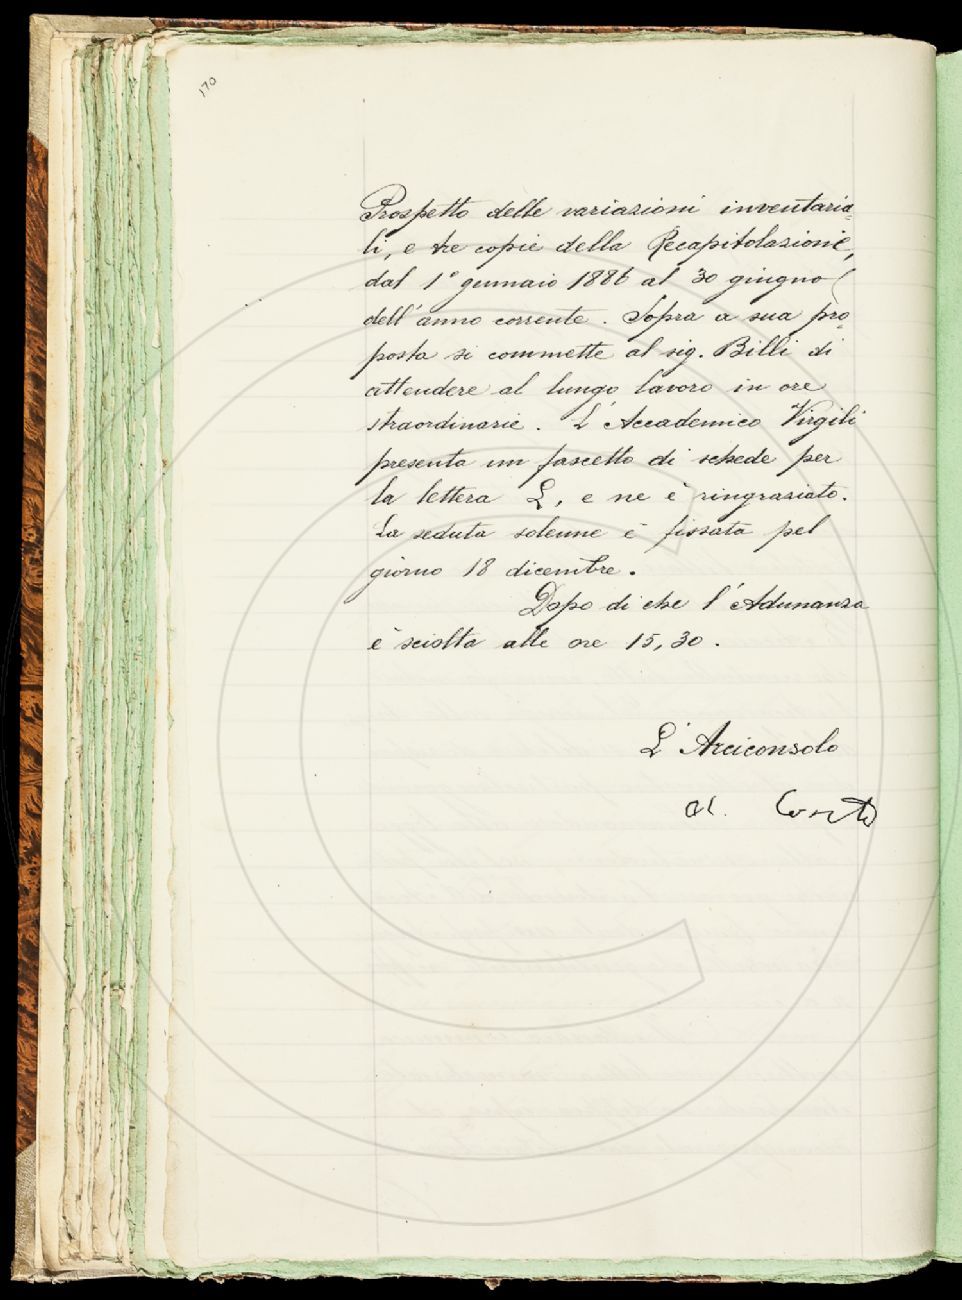 170
Prospetto delle variazioni inventaria=
li, e tre copie della Recapitolazione,
dal 1° gennaio 1886 al 30 giugno
dell'anno corrente. Sopra a sua pro=
posta si commette al sig. Billi di
attendere al lungo lavoro in ore
straordinarie. L'Accademico Virgili
presenta un fascetto di schede per
la lettera L, e ne è ringraziato.
La seduta solenne è fissata pel
giorno 18 dicembre.
Dopo di che l'Adunanza
è sciolta alle ore 15,30.
L'Arciconsolo